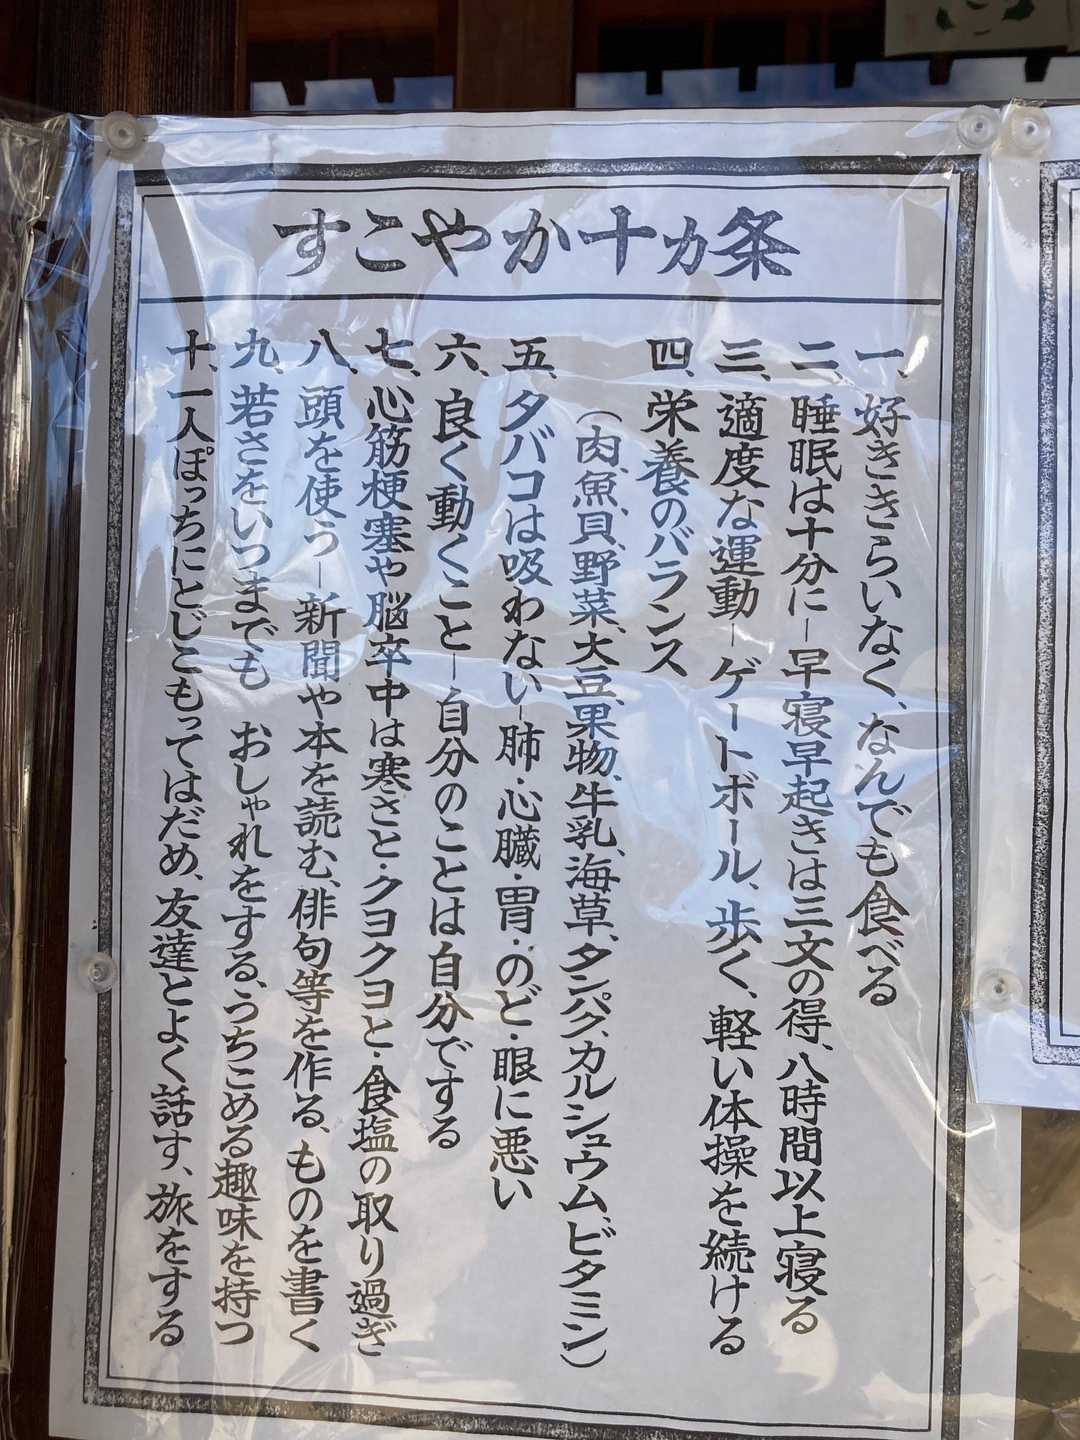 すこやか十ヵ条
一、好ききらいなく、なんでも食べる
二、睡眠は十分に−早寝早起きは三文の得、八時間以上寝る
三、適度な運動−ゲートボール、歩く、軽い体操を続ける
四、栄養のバランス
(肉、魚、貝、野菜、大豆、果物、牛乳、海草、タンパク、カルシュウム、ビタミン)
五、タバコは吸わない−肺・心臓・胃・のど・眼に悪い
六、良く動くこと−自分のことは自分でする
七、心筋梗塞や脳卒中は寒さと・クヨクヨと・食塩の取り過ぎ
八、頭を使う−新聞や本を読む、俳句等を作る、ものを書く
九、若さをいつまでも おしゃれをする、うちこめる趣味を持つ
十、一人ぽっちにとじこもってはだめ、友達とよく話す、旅をする